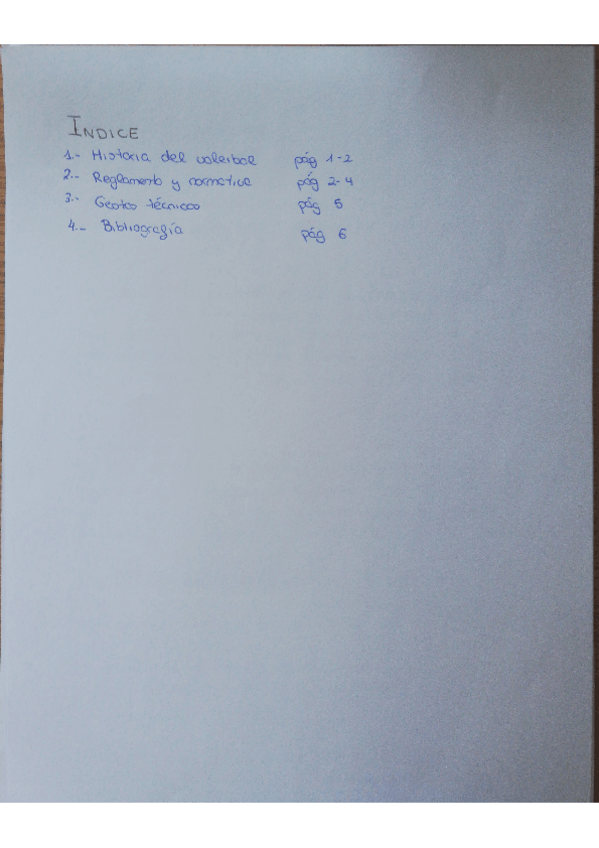 INDICE
1.- Historia del voleibol pág 1-2
2.- Reglamento y normativa pág 2-4
3.- Gestos técnicos pág 5
4.- Bibliografía pág 6